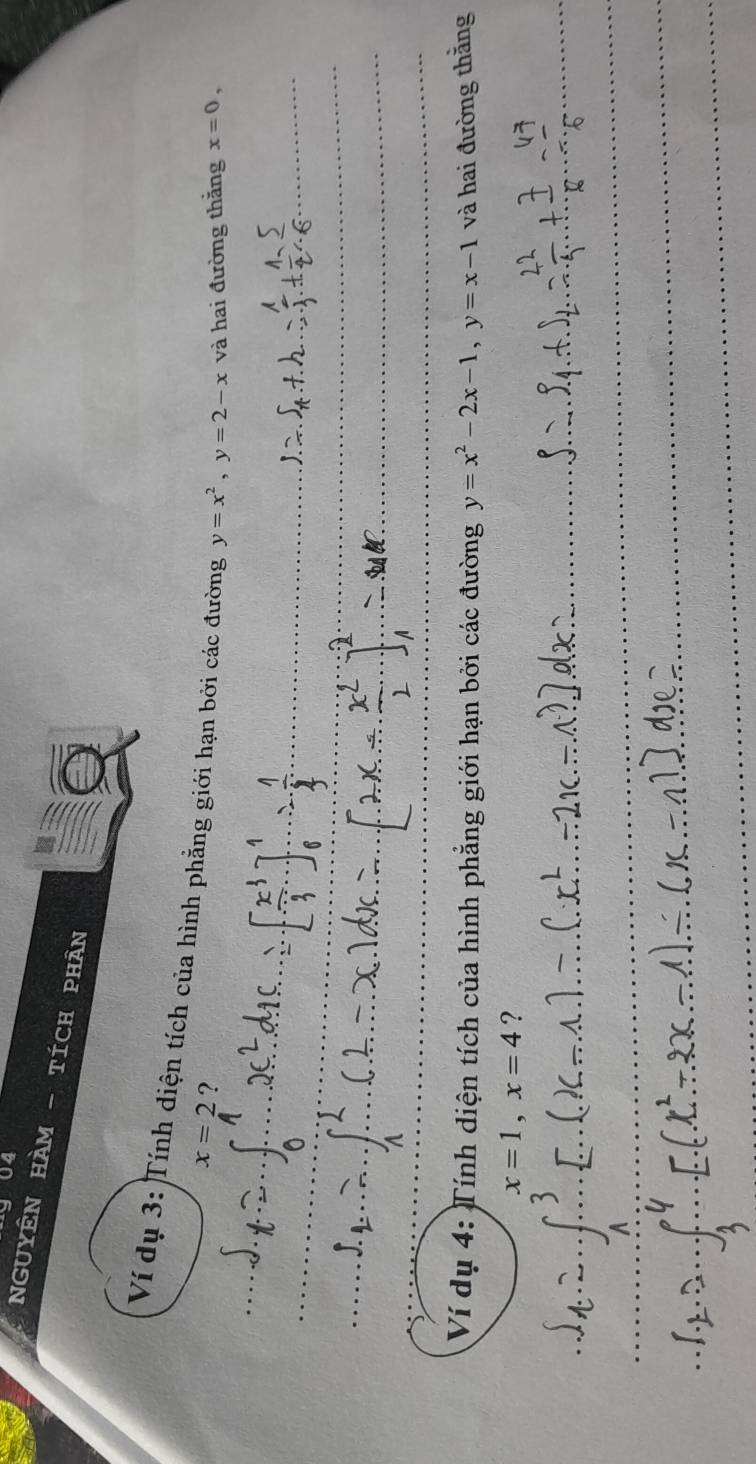 04
NGUYÊN HÀM – TÍCH PHÂN
Ví dụ 3: Tính diện tích của hình phẳng giới hạn bởi các đường y = x², y = 2 − x và hai đường thẳng x = 0,
x = 2?
S₁ = ∫₀¹ x² dx = [x³/3]₀¹ = 1/3
S = S₁ + = 1/3 + 1/2 = 5/6
S₂ = ∫₁² (2 − x) dx = [2x − x²/2]₁² =
Ví dụ 4: Tính diện tích của hình phẳng giới hạn bởi các đường y = x² − 2x − 1, y = x − 1 và hai đường thẳng
x = 1, x = 4?
S₁ = ∫₁³ [(x − 1) − (x² − 2x − 1)] dx =
S = S₁ + S₂ =
S₂ = ∫₃⁴ [(x² − 2x − 1) − (x − 1)] dx =